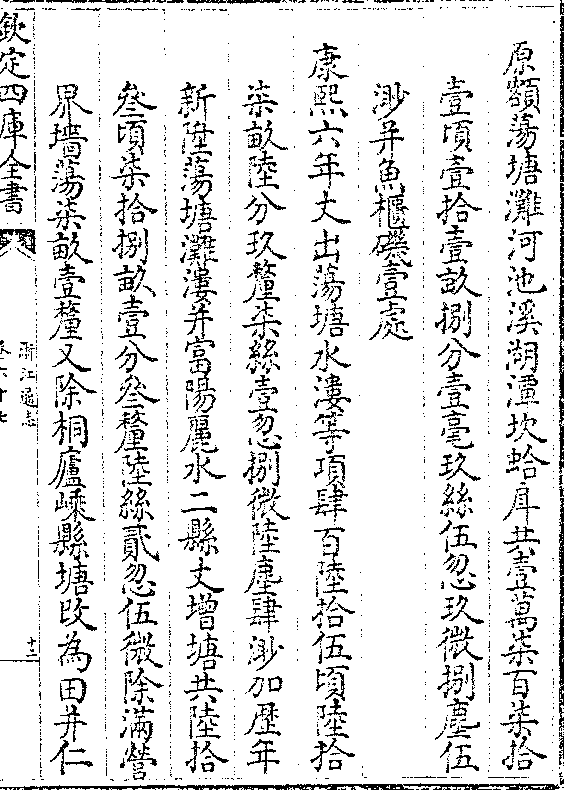 原額蕩塘灘河池溪湖潭坎蛤戽共壹萬柒百柒拾
壹頃壹拾壹畝捌分壹毫玖絲伍忽玖微捌塵伍
渺并魚櫃磯壹處
康熙六年丈出蕩塘水漊等項肆百陸拾伍頃陸拾
柒畝陸分玖釐柒絲壹忽捌微陸塵肆渺加歷年
新陞蕩塘灘漊并富陽麗水二縣丈增塘共陸拾
叁頃柒拾捌畝壹分叁釐陸絲貳忽伍微除滿營
界墻蕩柒畝壹釐又除桐廬嵊縣塘改為田并仁
欽定四庫全書
浙江通志
卷六十七
十三